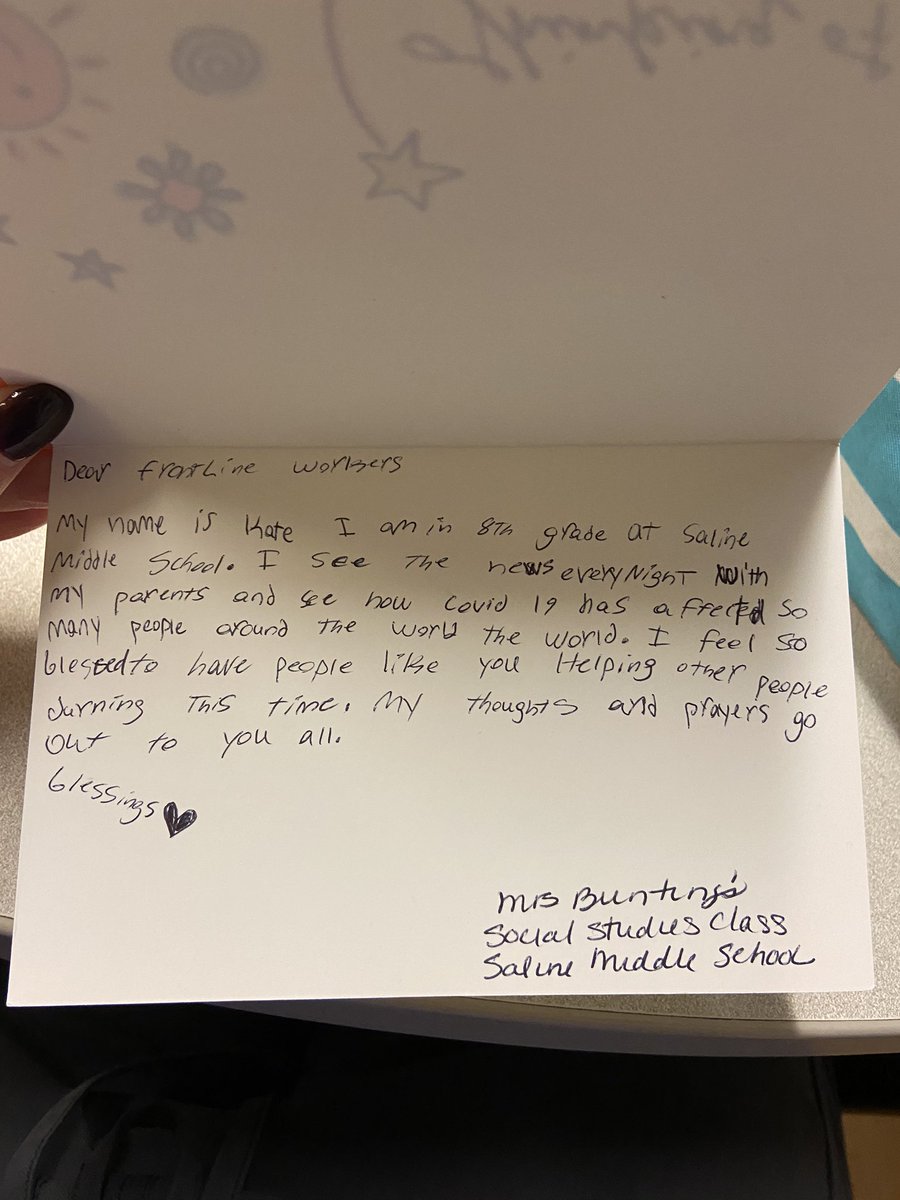 Dear frontLine workers
My name is Kate I am in 8Th grade at Saline
Middle School. I see the news everyNight with
my parents and see how covid 19 has affected so
many people around the world the world. I feel so
blessedto have people like you Helping other people
durning this time. My thoughts and prayers go
out to you all.
blessings
Mrs Bunting's
Social Studies Class
Saline Middle School